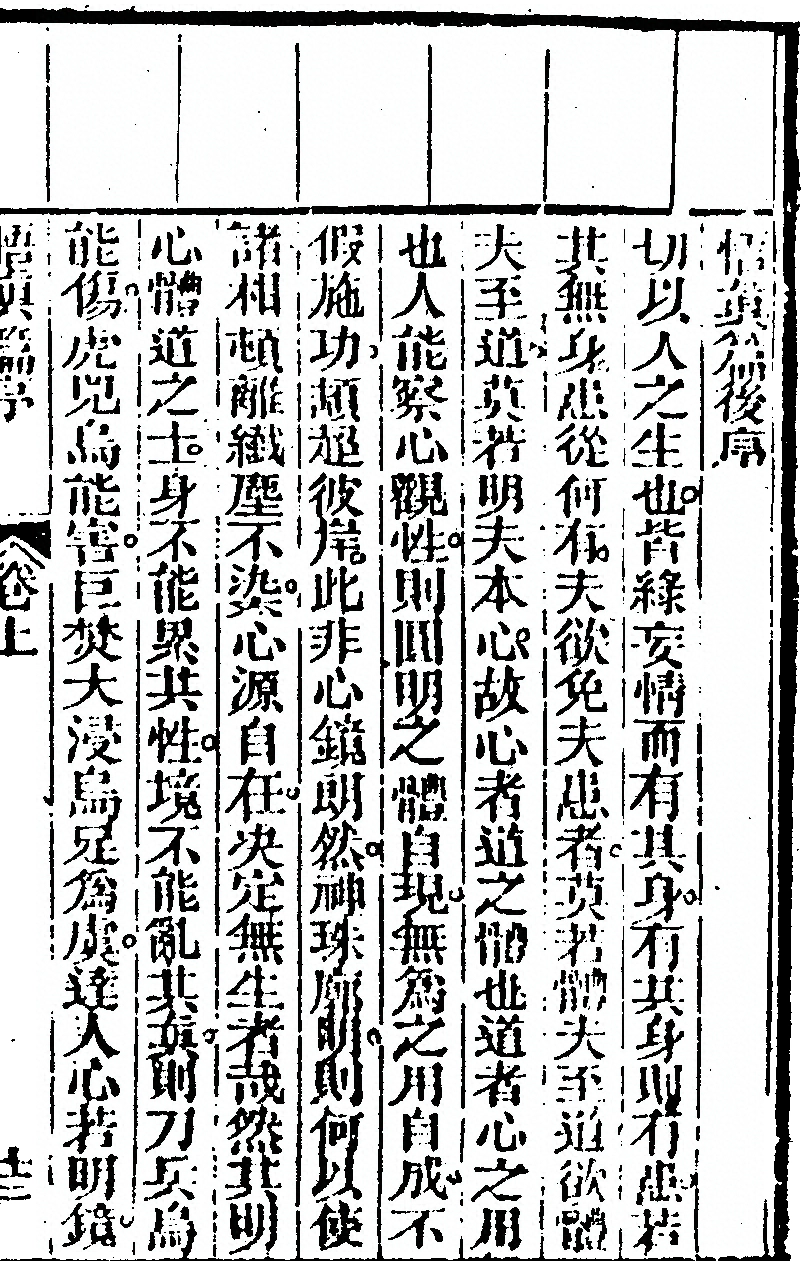 悟真篇後序
切以人之生也。皆緣妄情而有其身。有其身則有患。若
其無身。患從何有。夫欲免夫患者。莫若體夫至道。欲體
夫至道。莫若明夫本心。故心者道之體也。道者心之用
也。人能察心觀性。則圓明之體自現。無爲之用自成。不
假施功。頓超彼岸。此非心鏡朗然。神珠廓明。則何以使
諸相頓離。纖塵不染。心源自在。决定無生者哉。然其明
心體道之士。身不能累其性。境不能亂其真。則刀兵烏
能傷。虎兕烏能害。巨焚大浸烏足爲虞。達人心若明鏡。
悟真篇序
卷上
十三